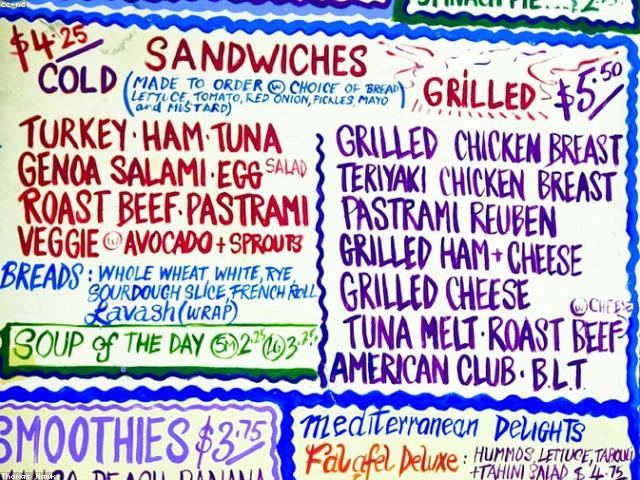 cc-nc
SPINACH PIE...$2.
$4.25/
COLD
SANDWICHES
(MADE TO ORDER (W) CHOICE OF BREAD
LETTUCE, TOMATO, RED ONION, PICKLES, MAYO
and MUSTARD)
TURKEY · HAM · TUNA
GENOA SALAMI · EGG SALAD
ROAST BEEF · PASTRAMI
VEGGIE (W) AVOCADO + SPROUTS
BREADS : WHOLE WHEAT, WHITE, RYE,
SOURDOUGH SLICE, FRENCH ROLL
Lavash (WRAP)
SOUP of THE DAY (SM) 2.25 (LG) 3.25
GRILLED $5.50
GRILLED CHICKEN BREAST
TERIYAKI CHICKEN BREAST
PASTRAMI REUBEN
GRILLED HAM + CHEESE
GRILLED CHEESE
TUNA MELT · ROAST BEEF (W) CHEESE
AMERICAN CLUB · B.L.T.
SMOOTHIES $3.75
PEACH, BANANA
MEDITERRANEAN DELIGHTS
Falafel Deluxe : HUMMOS, LETTUCE, TABOULI
+ TAHINI SALAD $4.75
Thomas Hawk